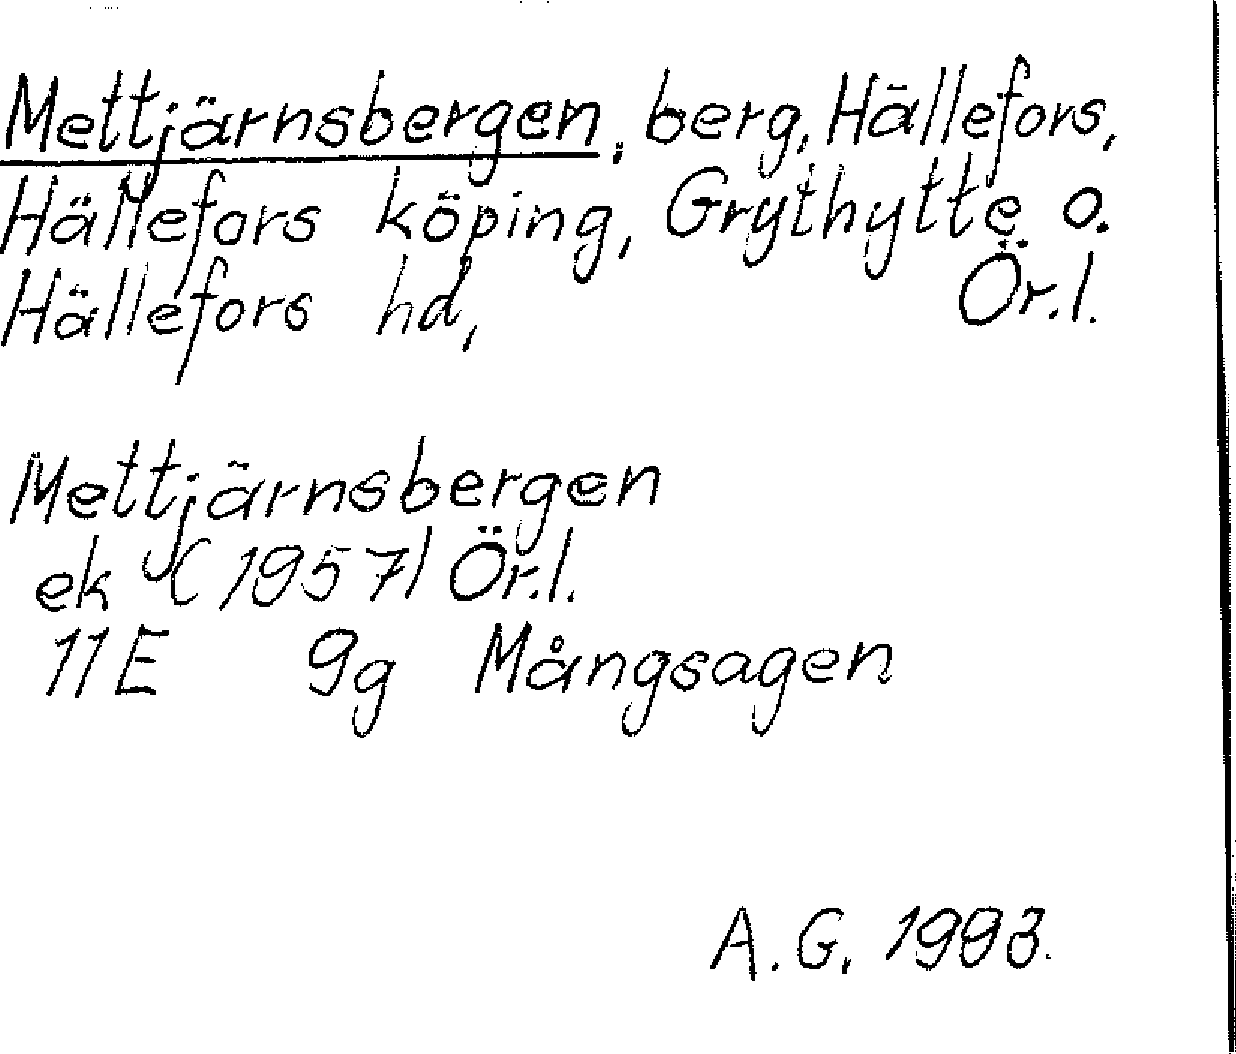 Mettjärnsbergen, berg, Hällefors,
Hällefors köping, Grythytte o.
Hällefors hd, Ör.l.
Mettjärnsbergen
ek (1957) Ör.l.
11E 9g Mångsagen
A.G. 1993.